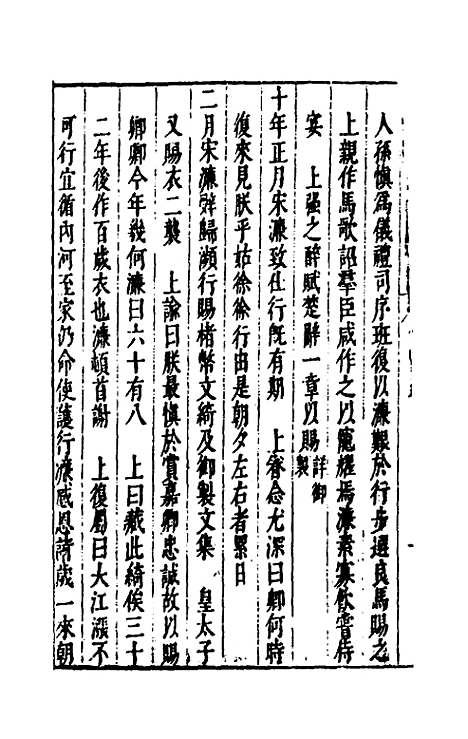 人孫慎爲儀禮司序班復以濂艱於行步選良馬賜之
上親作馬歌詔羣臣咸作之以寵耀焉濂素寡飲嘗侍
宴　上强之醉賦楚辭一章以賜詳御製
十年正月宋濂致仕行既有期　上眷念尤深曰卿何時
復來見朕乎姑徐徐行由是朝夕左右者累日
二月宋濂辭歸瀕行賜楮幣文綺及御製文集　皇太子
又賜衣二襲　上諭曰朕最慎於賞嘉卿忠誠故以賜
卿卿今年幾何濂曰六十有八　上曰藏此綺俟三十
二年後作百歲衣也濂頓首謝　上復屬曰大江漲不
可行宜循內河至家仍命使護行濂感恩請歲一來朝